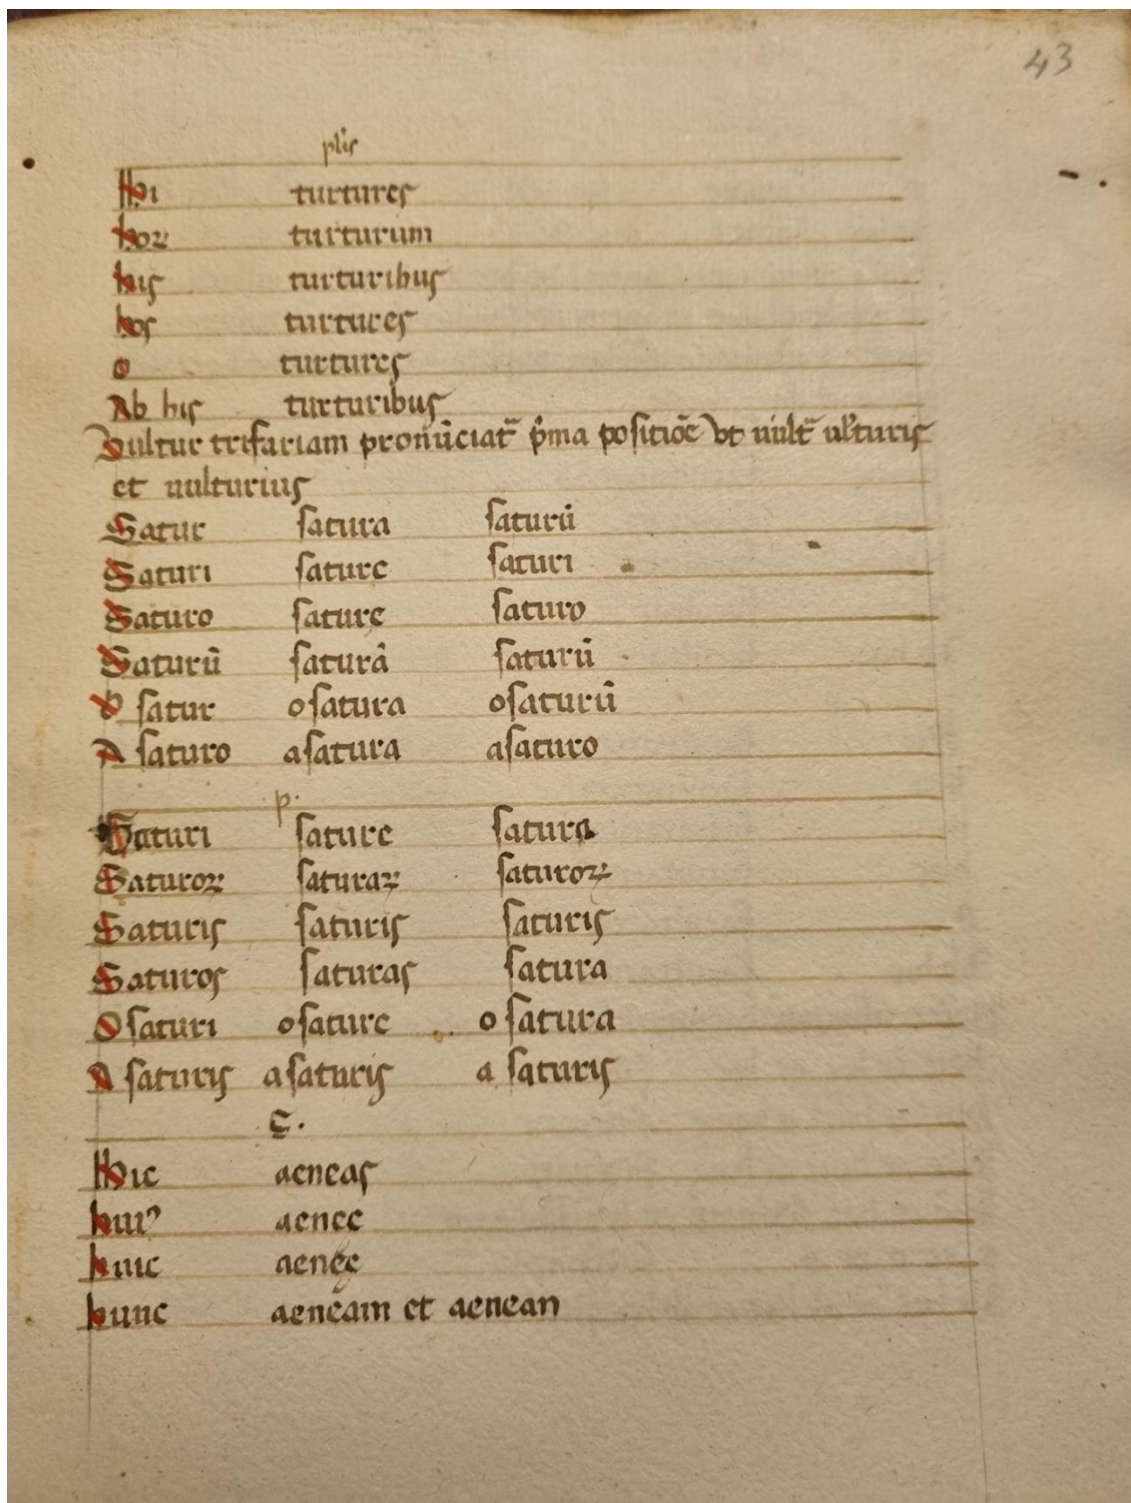 43
pl̄is
Hi turtures
hoꝝ turturum
his turturibus
hos turtures
o turtures
Ab his turturibus
Vultur trifariam pronũciat̃ p̃ma positiõe vt uult̃ ul̃turis
et uulturius
Satur satura saturũ
Saturi sature saturi
Saturo sature saturo
Saturũ saturã saturũ
O satur o satura o saturũ
A saturo a satura a saturo
p.
Saturi sature satura
Saturoꝝ saturaꝝ saturoꝝ
Saturis saturis saturis
Saturos saturas satura
O saturi o sature o satura
A saturis a saturis a saturis
S.
Hic aeneas
huiꝰ aenee
huic aenee
hunc aeneam et aenean